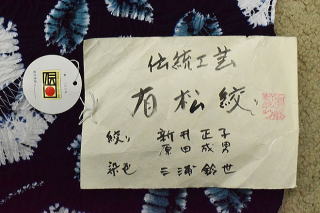 伝統工芸
有松絞り
絞り 新井正子
原田成男
染色 三浦鈴世
伝